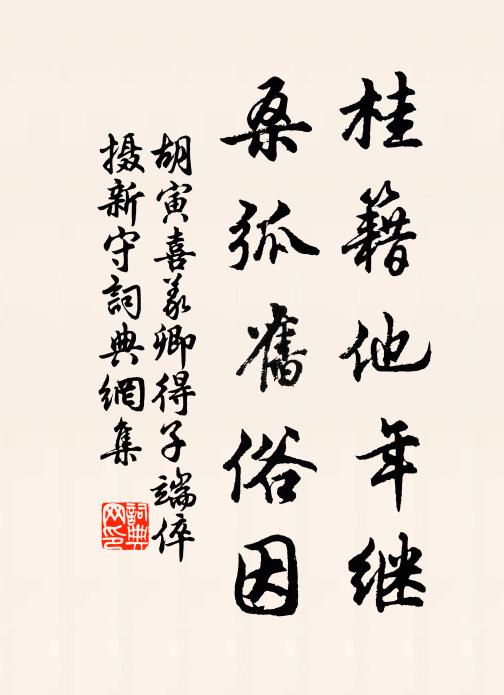 桂籍他年继
桑弧舊俗因
胡寅喜羲卿得子端倅
摄新守詞典網集
詞典
网印